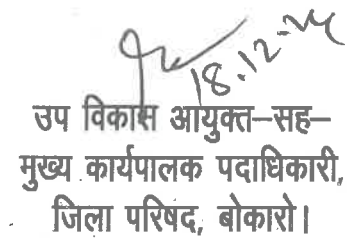 18.12.24
उप विकास आयुक्त–सह–
मुख्य कार्यपालक पदाधिकारी,
जिला परिषद, बोकारो।